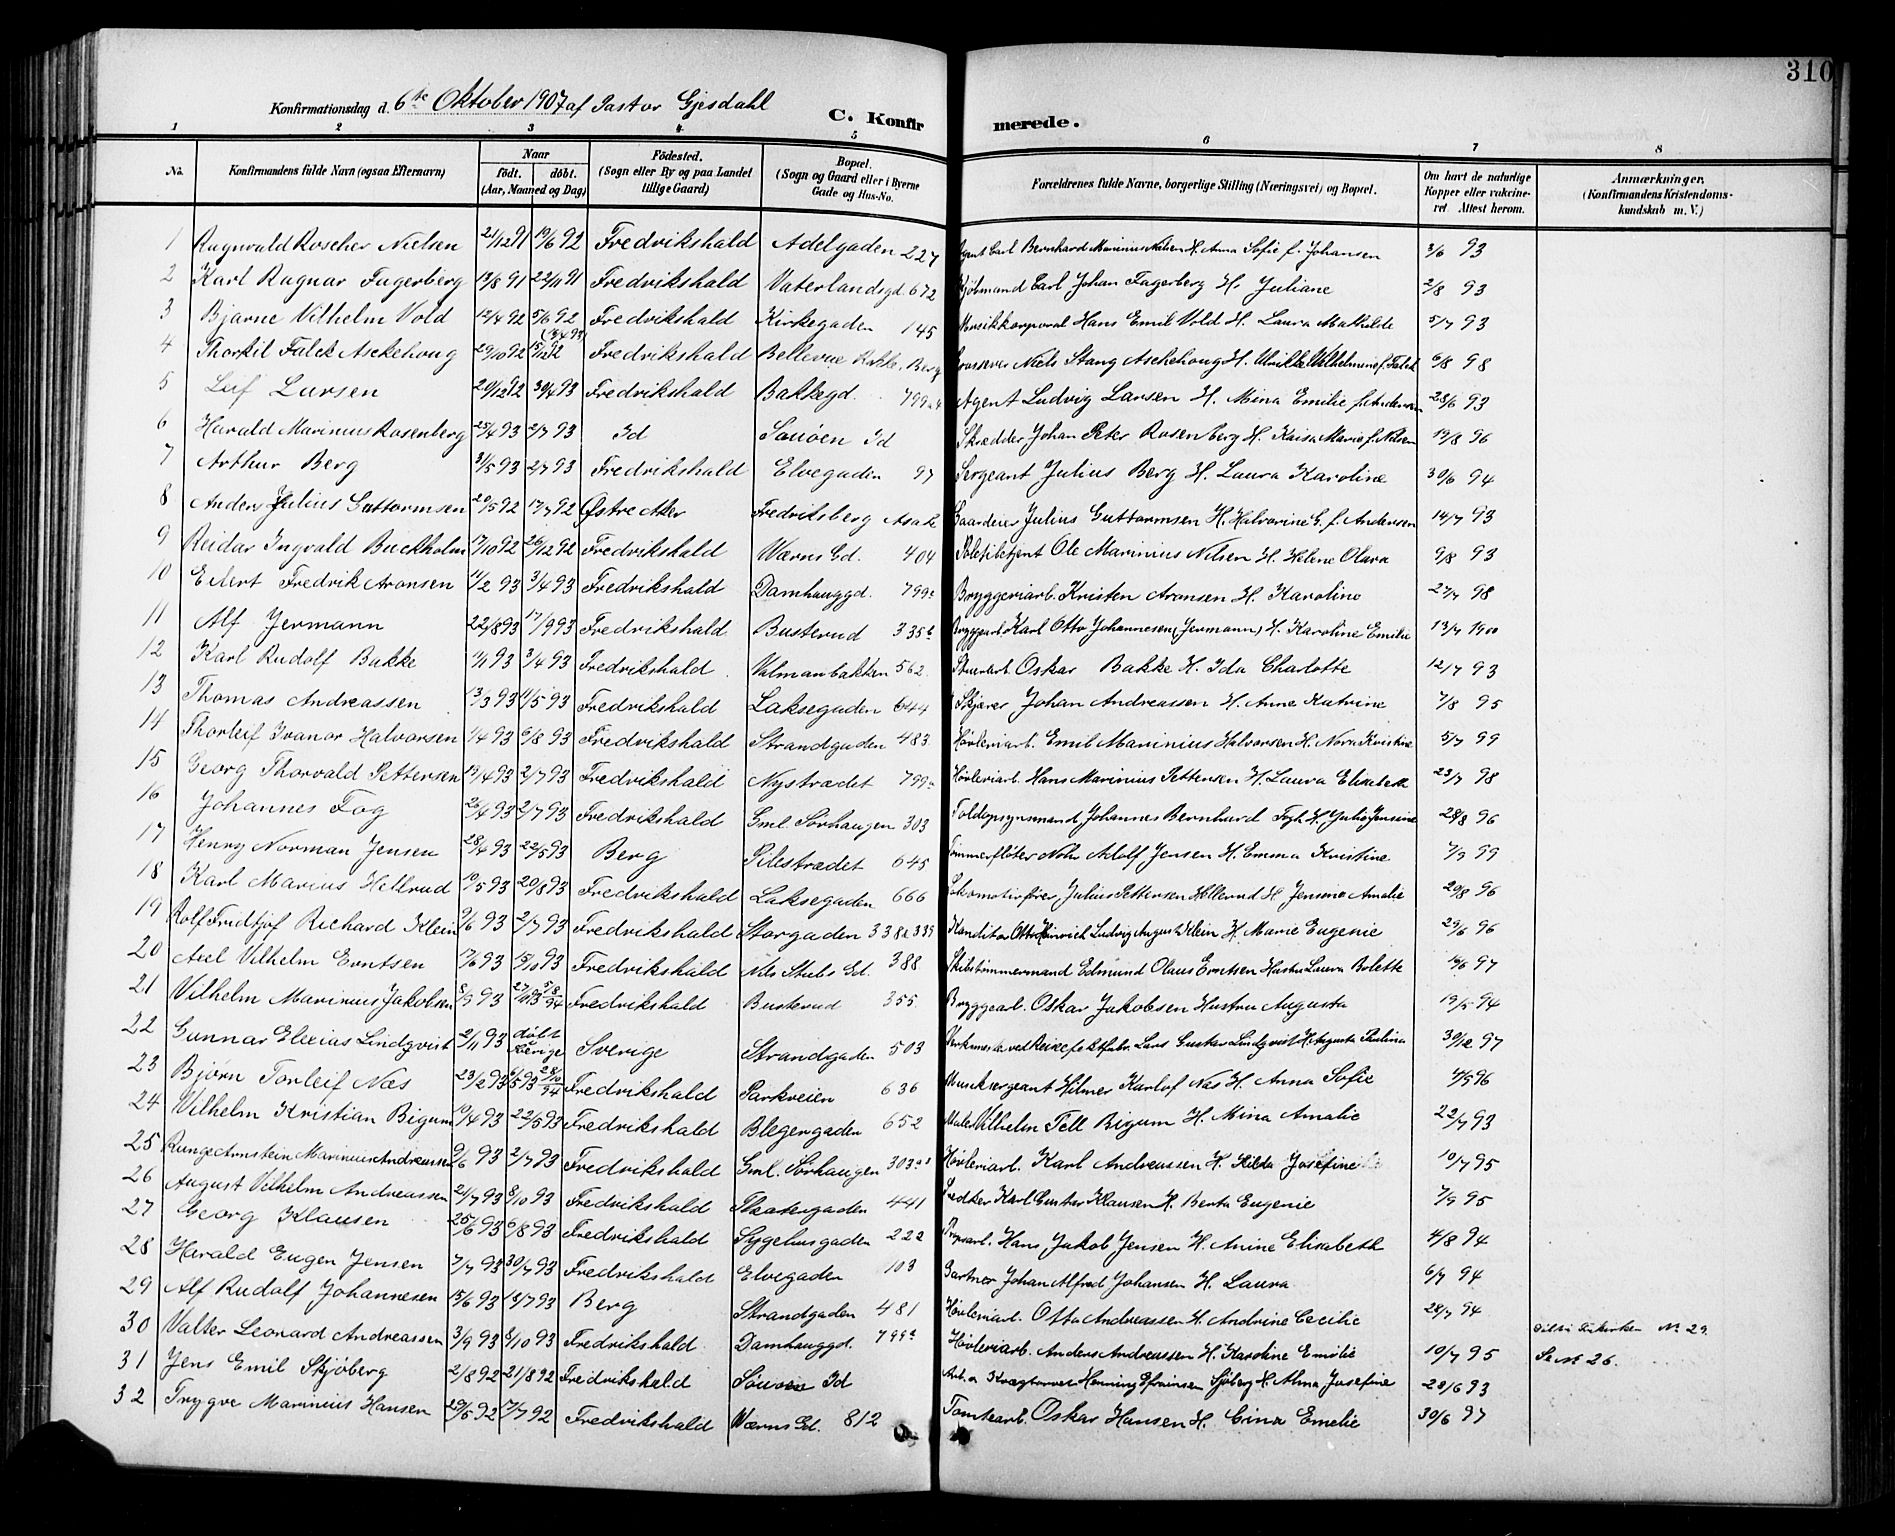 310
Konfirmationsdag d. 6te Oktober 1907 af Pastor Gjesdahl
C. Konfirmerede.
1 2 3 4 5 6 7 8
No. Konfirmandens fulde Navn (ogsaa Efternavn) Naar født. døbt. (Aar, Maaned og Dag) Födested. (Sogn eller By og paa Landet tillige Gaard) Bopæl. (Sogn og Gaard eller i Byerne Gade og Hus-No. Forældrenes fulde Navne, borgerlige Stilling (Næringsvei) og Bopæl. Om havt de naturlige Kopper eller vakcineret. Attest herom. Anmærkninger. (Konfirmandens Kristendomskundskab m. V.)
1 Ragnvald Roscher Nielsen 21/12 91 19/6 92 Fredrikshald Adelgaden 227 Agent Carl Bernhard Marinius Nielsen H. Anna Sofie f. Johansen 3/6 93
2 Karl Ragnar Fagerberg 19/8 91 22/11 91 Fredrikshald Vaterlandsgd. 672 Carl Johan Fagerberg H. Juliane 2/8 93
3 Bjarne Vilhelm Vold 12/4 92 5/6 92 Fredrikshald Kirkegaden 145 Musikkorporal Hans Emil Vold H. Laura Mathilde 5/7 93
4 Thorkil Falck Aschehoug 29/10 92 15/12 92 Fredrikshald Bellevue Rokke, Berg Grosserer Niels Stang Aschehoug H. Ulrikke Vilhelmine f. Falck 6/8 98
5 Leif Larsen 20/12 92 30/4 93 Fredrikshald Bakkegd. 799 Agent Ludvig Larsen H. Mina Emilie f. Andersen 28/6 93
6 Harald Marinius Rosenberg 25/4 93 2/7 93 Id Sauöen Id Skrædder Johan Peter Rosenberg H. Kaisa Marie f. Nilsen 19/8 96
7 Arthur Berg 31/5 93 2/7 93 Fredrikshald Elvegaden 97 Sergeant Julius Berg H. Laura Karoline 30/6 94
8 Anders Julius Guttormsen 20/5 92 17/7 92 Østre Aker Fredriksberg Asak Gaardeier Julius Guttormsen H. Halvorine G. f. Andersen 14/7 93
9 Reidar Ingvald Buckholm 17/10 92 26/12 92 Fredrikshald Værns Gd. 404 Politibetjent Ole Marinius Nilsen H. Helene Olava 9/8 93
10 Edert Fredrik Aronsen 11/2 93 3/4 93 Fredrikshald Damhauggd. 799 Bryggeriarb. Kristen Aronsen H. Karoline 27/7 98
11 Alf Jermann 22/8 93 17/9 93 Fredrikshald Busterud 335 b Bryggearb Karl Otto Johannesen (Jermann) H. Karoline Emilie 13/7 1900
12 Karl Rudolf Bakke 11/1 93 3/4 93 Fredrikshald Valmanbakken 562 Stuertarb Oskar Bakke H. Ida Charlotte 12/7 93
13 Thomas Andreassen 13/3 93 11/5 93 Fredrikshald Laksegaden 644 Skjærer Johan Andreassen H. Anne Katrine 7/8 95
14 Thorleif Ivanor Halvorsen 1/4 93 6/8 93 Fredrikshald Strandgaden 483 Høvleriarb. Emil Marinius Halvorsen H. Nora Kristine 5/7 99
15 Georg Thorvald Pettersen 19/4 93 2/7 93 Fredrikshald Nystrædet 799 Høvleriarb. Hans Marinius Pettersen H. Laura Elisabeth 23/7 98
16 Johannes Fog 26/4 93 2/7 93 Fredrikshald Gml. Sørhaugen 303 Toldopsynsmand Johannes Bernhard Fogh H. Julie Jensine 28/8 96
17 Henry Norman Jensen 28/4 93 22/5 93 Berg Pilestrædet 645 Tømmerfløter Adolf Jensen H. Emma Kristine 7/9 99
18 Karl Marius Hellerud 19/5 93 20/8 93 Fredrikshald Laksegaden 666 Lokomotivfører Julius Pettersen Hellerud H. Jensine Amalie 20/8 96
19 Rolf Fridtjof Richard Klein 9/6 93 2/7 93 Fredrikshald Storgaden 338 & 339 Konditor Otto Heinrich Ludvig August Klein H. Marie Eugenie 29/6 96
20 Axel Vilhelm Erntsen 17/6 93 15/10 93 Fredrikshald Nils Stubs Gd. 388 Skibstømmermand Edmund Olaus Erntsen Hustru Laura Bolette 19/6 97
21 Vilhelm Marinius Jakobsen 8/9 93 Fredrikshald Busterud 355 Bryggearb. Oskar Jakobsen Hustru Augusta 19/5 94
22 Gunnar Elexius Lindqvist 2/11 93 døbt i Sverige Sverige Strandgaden 503 Lars Gustav Lindqvist H. Augusta Paulina 30/12 97
23 Bjørn Torleif Næs 23/2 93 Fredrikshald Parkveien 636 Musiksergeant Hilmer Karlof Næs H. Anna Sofie 4/5 96
24 Vilhelm Kristian Bigum 19/4 93 22/5 93 Fredrikshald Blegergaden 652 Maler Vilhelm Tell Bigum H. Mina Amalie 22/7 93
25 Runge Arnstein Marinius Andreassen 9/6 93 2/7 93 Fredrikshald Gml. Sørhaugen 303 Høvleriarb. Karl Andreassen H. Hilda Josefine 10/7 95
26 August Vilhelm Andreassen 21/7 93 8/10 93 Fredrikshald Theatergaden 441 Karl Gustav Klausen H. Berta Eugenie 7/9 95
27 Georg Klausen 25/6 93 6/8 93 Fredrikshald Sygehusgaden 222 Hans Jakob Jensen H. Anine Elisabeth 4/8 94
28 Harald Eugen Jensen 7/7 93 30/7 93 Fredrikshald Elvegaden 103 Gartner Johan Alfred Johansen H. Laura 6/7 94
29 Alf Rudolf Johannesen 15/6 93 16/7 93 Berg Strandgaden 481 Høvleriarb. Otto Andreassen H. Andrine Cecilie 28/7 94
30 Valter Leonard Andreassen 3/9 93 8/10 93 Fredrikshald Damhauggd. 799 Høvleriarb. Anders Andreassen H. Karoline Emilie 10/7 95 No 29.
31 Jens Emil Skjøberg 2/8 92 21/8 92 Fredrikshald Sauöen Id Henning Efraimsen Sjöberg H. Alma Josefine 28/6 93 Se No 26.
32 Trygve Marinius Hansen 29/5 92 17/7 92 Fredrikshald Værns Gd. 812 Tomtearb. Oskar Hansen H. Lina Emelie 30/6 97